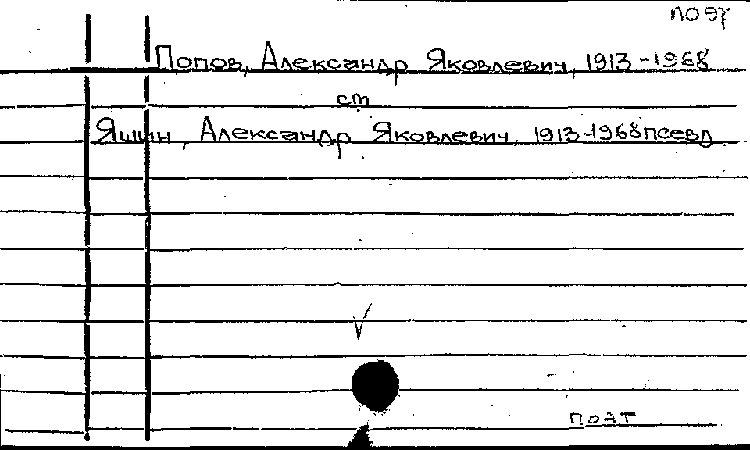 поэт
Попов, Александр Яковлевич, 1913-1968
см
Яшин, Александр Яковлевич, 1913-1968 псевд
поэт